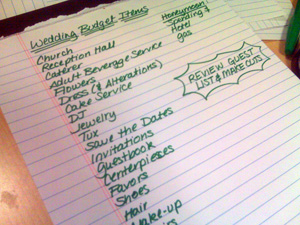 Wedding Budget Items
Church
Reception Hall
Caterer
Adult Beverage Service
Flowers
Dress (& Alterations)
Cake Service
DJ
Jewelry
Tux
Save the Dates
Invitations
Guestbook
Centerpieces
Favors
Shoes
Hair
Make-up
Honeymoon
Spending $
Hotel
gas
REVIEW GUEST
LIST & MAKE CUTS